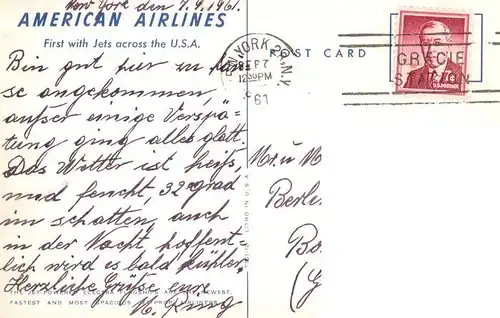 New York den 7.9.1961.
AMERICAN AIRLINES
First with Jets across the U.S.A.
Bin gut hier in
angekommen,
außer einige Verspä-
tung ging alles glatt.
Das Wetter ist heiß,
und feucht, 32 grad
im schatten, auch
in der Nacht hoffent-
lich wird es bald kühler
Herzliche Grüße eure
THE JET-POWERED ELECTRA FLAGSHIPS ARE THE NEWEST,
FASTEST AND MOST SPACIOUS
LITHO IN U.S.A.
POST CARD
NEW YORK 28, N.Y.
SEP 7
12 30 PM
1961
GRACIE
STATION
U.S. POSTAGE
Mr. u M
Berli
Bo
(G